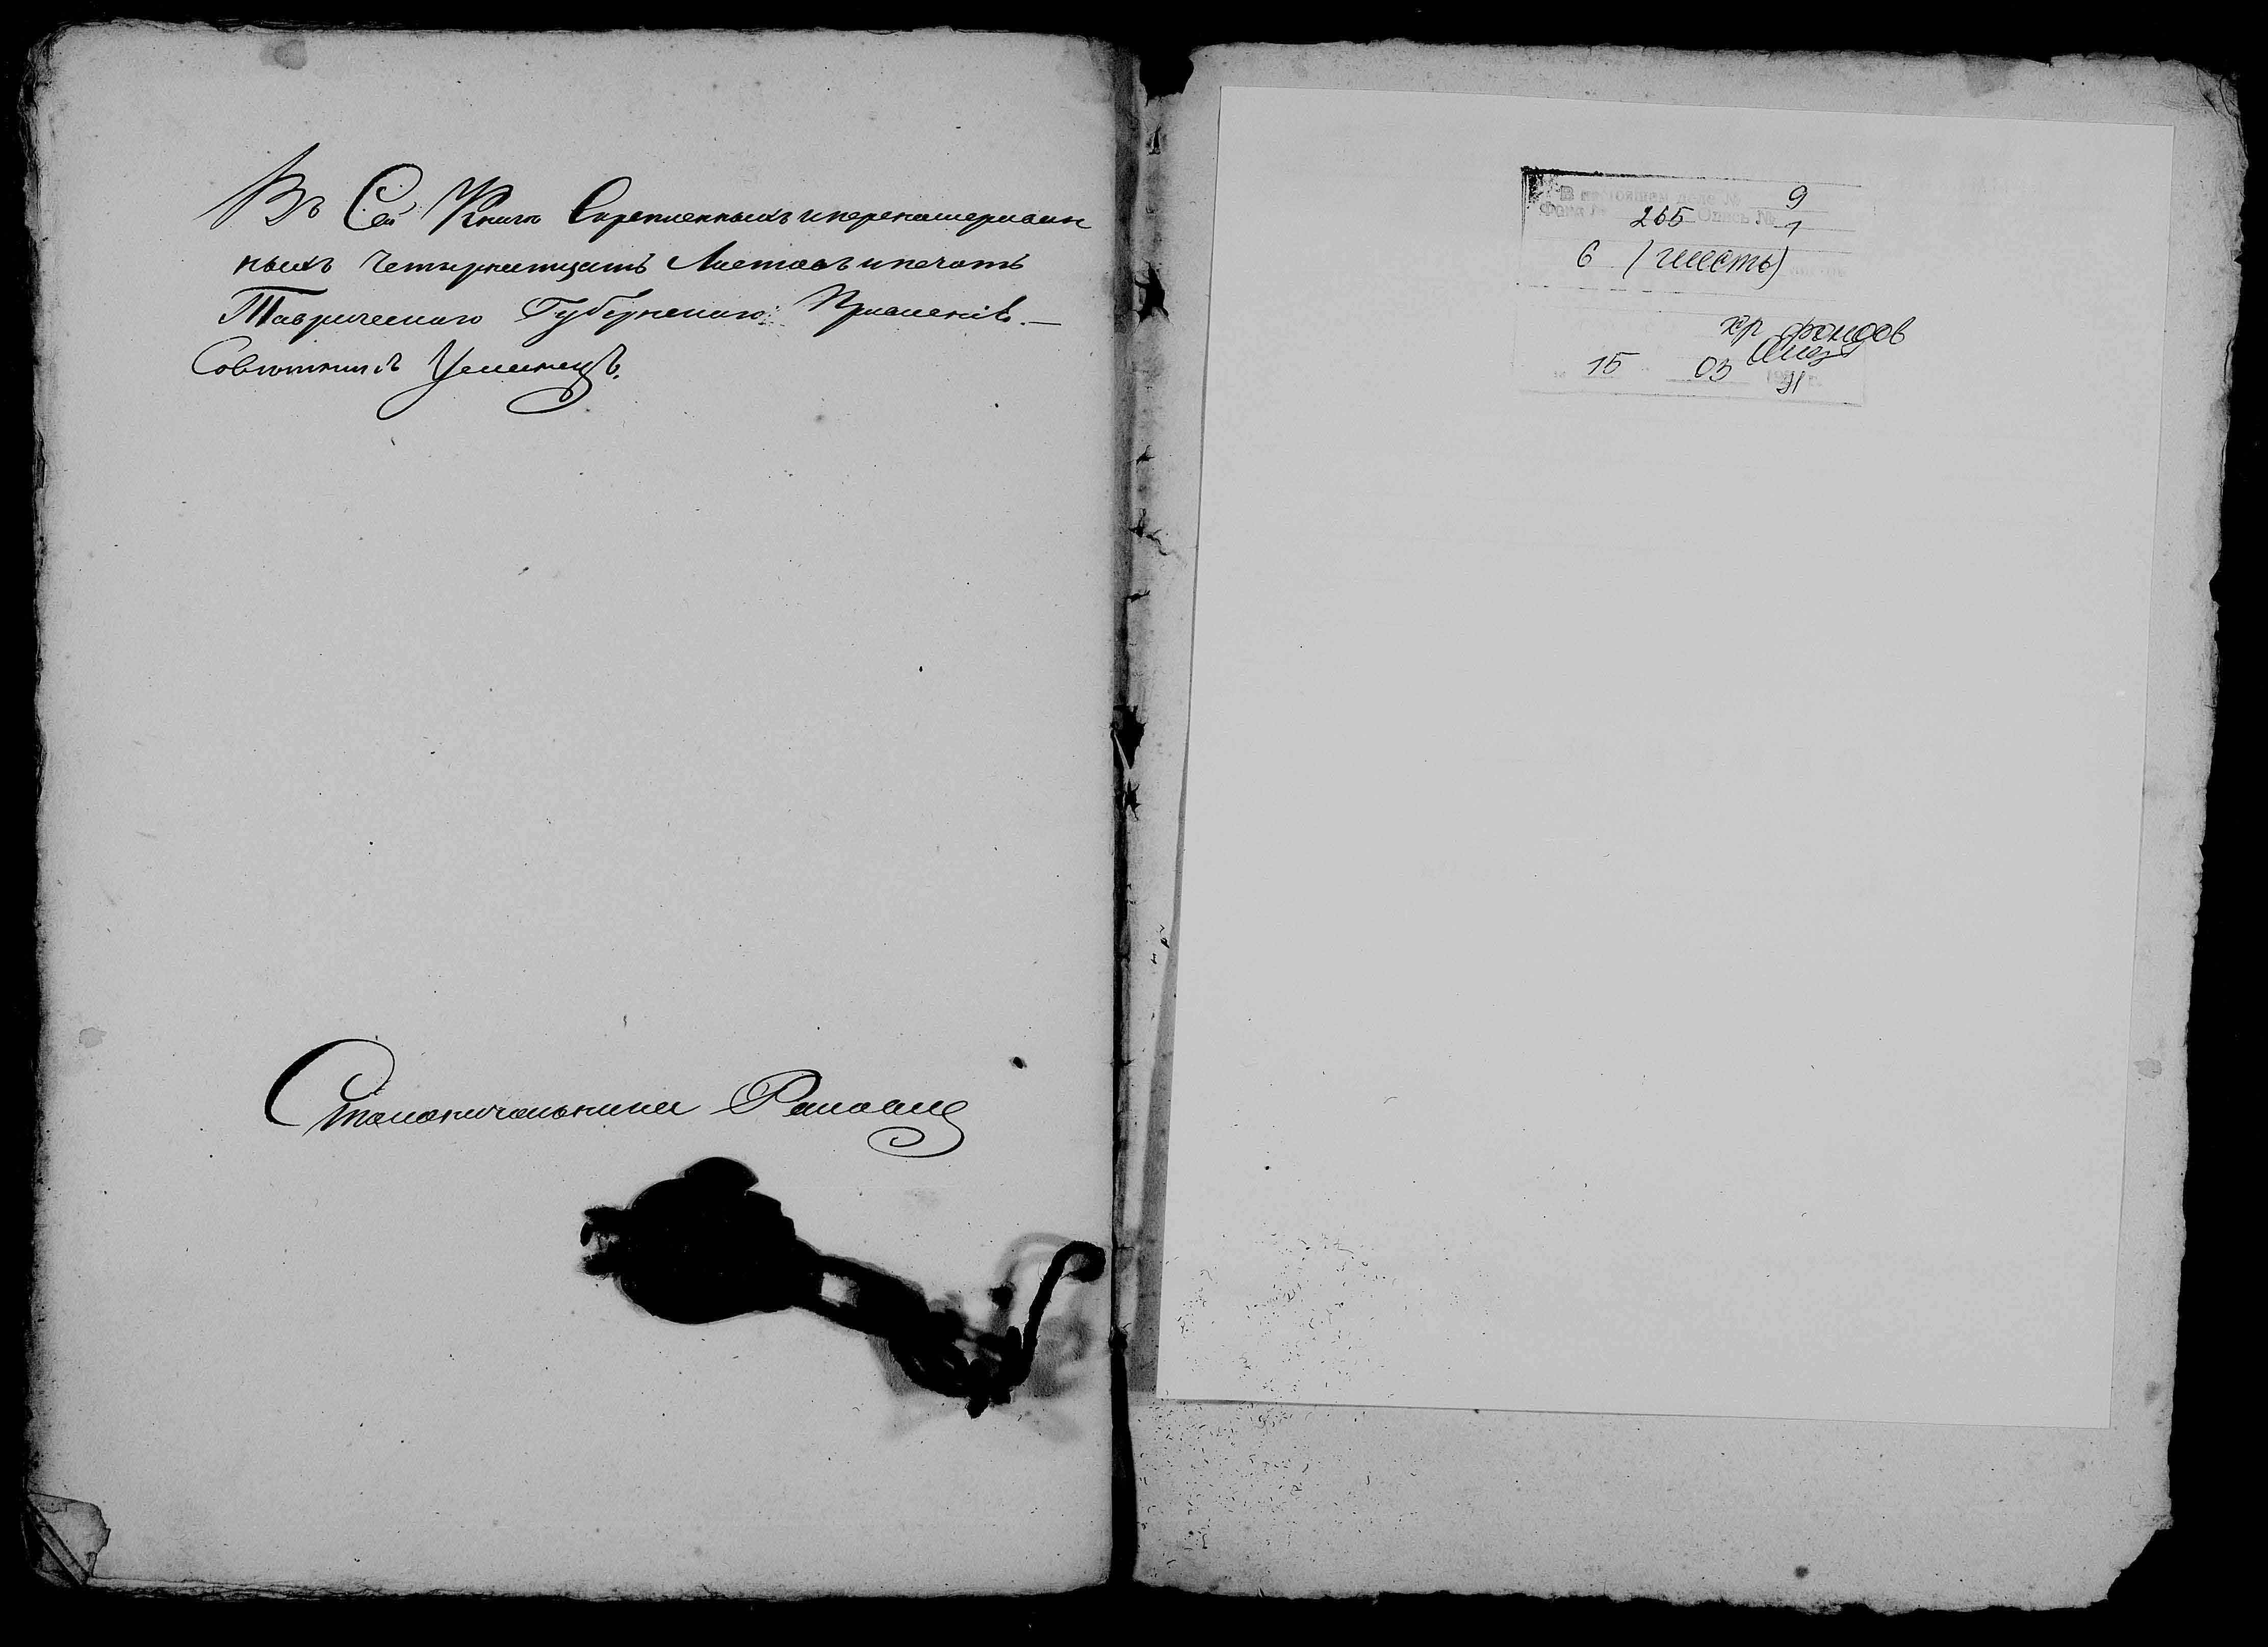 Въ Сей Книгѣ Скрепленныхъ и перенамерован
ныхъ четырнатцать Листовъ и печать
Таврическаго Губернскаго Правленія.—
Совѣтникъ
Столоначальникъ
В настоящем деле № 9
Фонд № 265 Опись № 1
6 (шесть)
хр. фондов
15 03 91